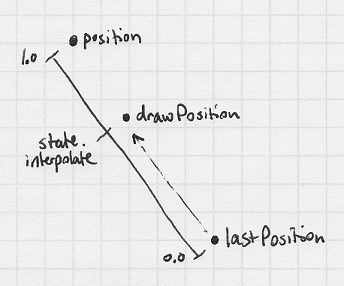 position
1.0
drawPosition
state.
interpolate
lastPosition
0.0